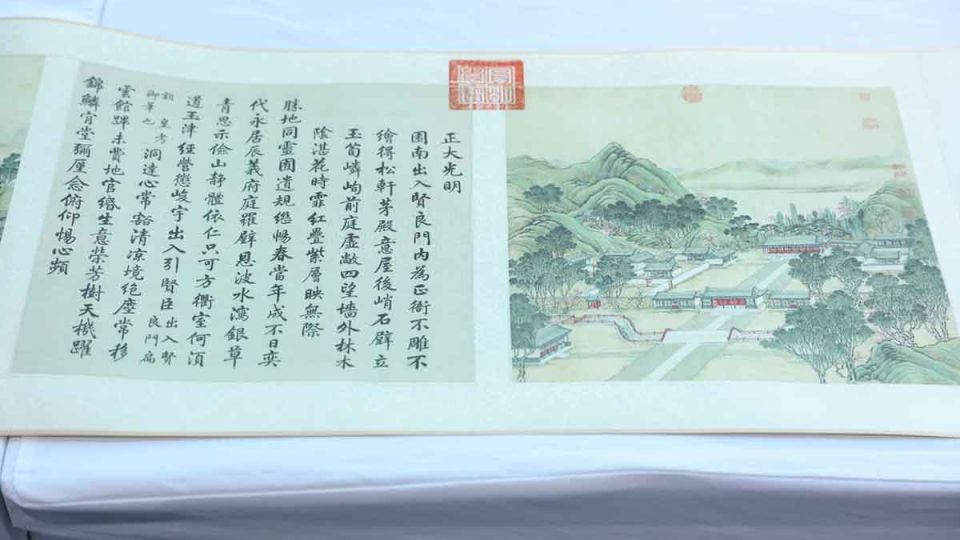 正大光明
園南出入賢良門內為正衙不雕不
繪得松軒茅殿意屋後峭石壁立
玉筍嶙峋前庭虛敞四望墻外林木
陰湛花時霏紅疊紫層映無際
勝地同靈囿遺規繼暢春當年成不日奕
代永居辰義府庭羅壁恩波水瀉銀草
青思示儉山靜體依仁只可方衢室何須
道玉津經營懲峻宇出入引賢臣出入賢良門扁
額皇考御筆也洞達心常豁清涼境絕塵常移
雲館蹕未費地官緡生意榮芳樹天機躍
錦鱗肯堂彌厪念俯仰惕心頻